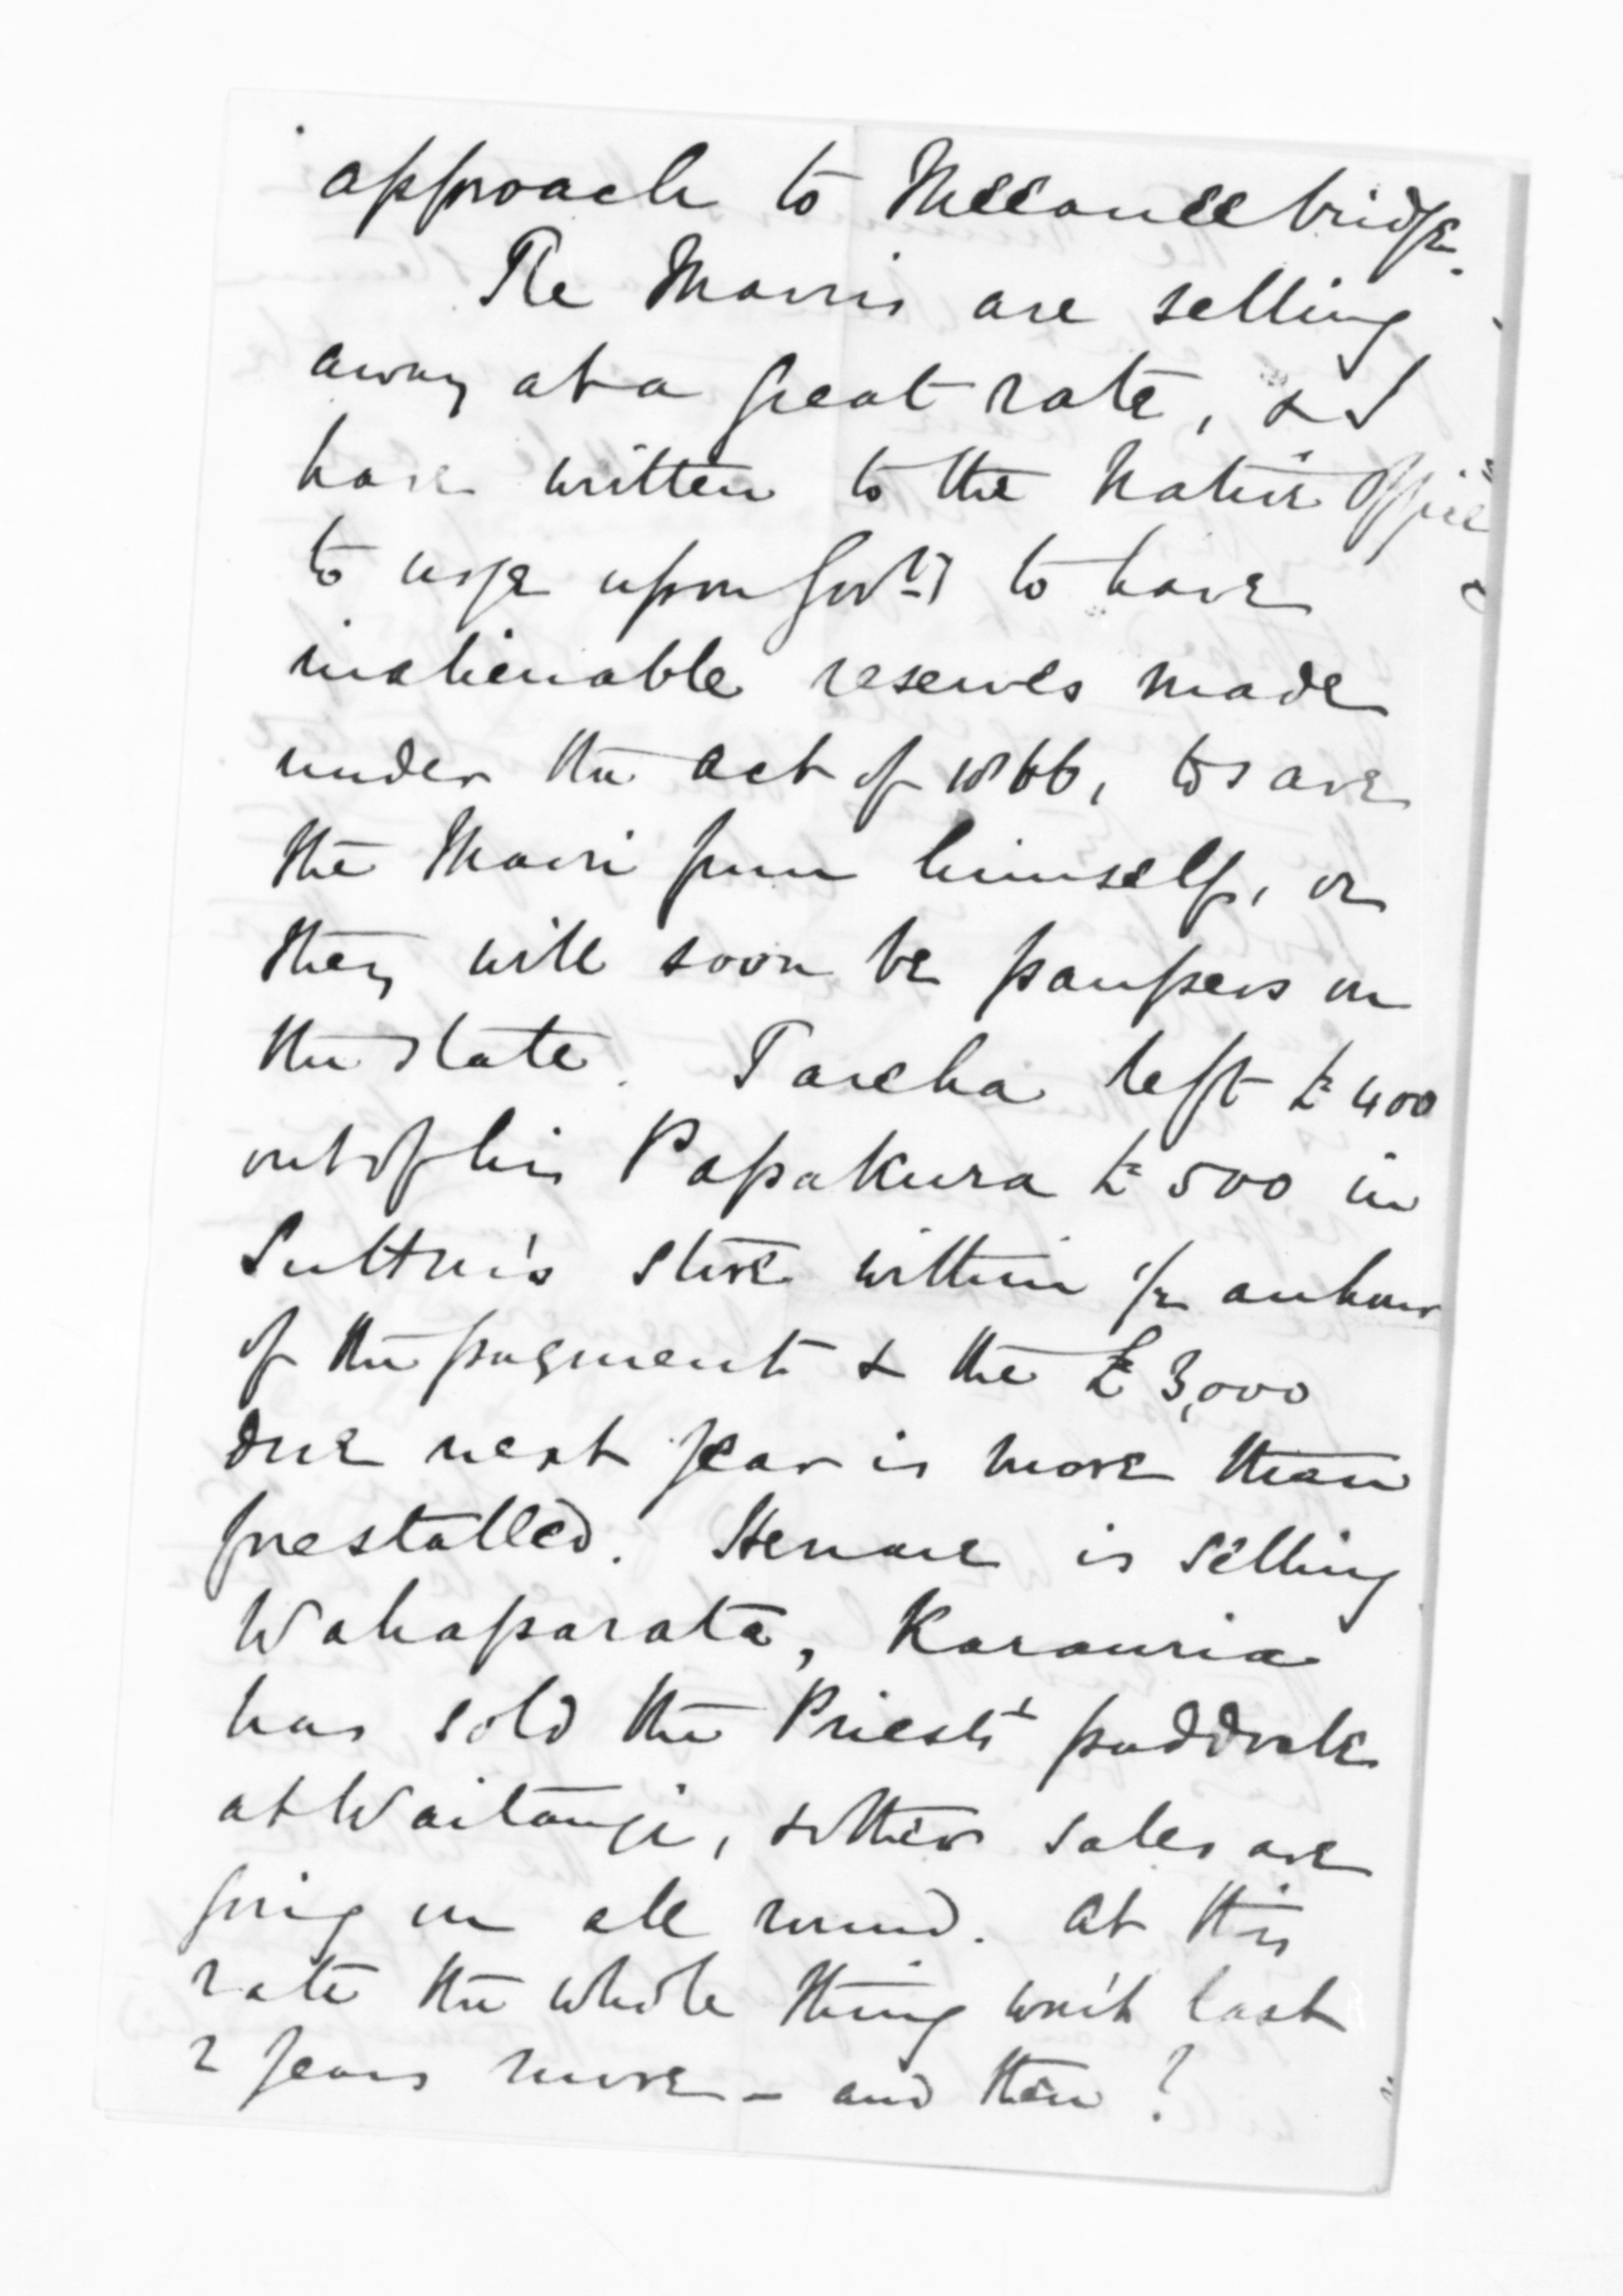 approach to Meeanee bridge.
The Maoris are selling
away at a great rate, & I
have written to the Native Office
to urge upon Govt. to have
inalienable reserves made
under the Act of 1866, to save
the Maori from himself, or
they will soon be paupers on
the state. Tareha left £400
out of his Papakura £500 in
Sutton's store within 1/2 an hour
of the payment & the £3,000
due next year is more than
forestalled. Henare is selling
Wahaparata, Karauria
has sold the Priests' paddock
at Waitangi, & other sales are
going on all round. At this
rate the whole thing won't last
2 years more - and then?